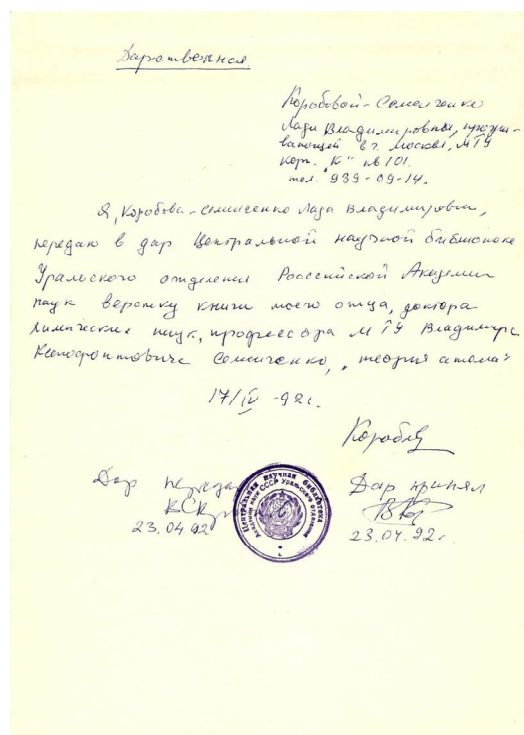 Дарственная
Коробовой-Семенченко
Лады Владимировны, прожи-
вающей в г. Москве, МГУ
корп. "К" кв 101.
тел. 939-09-14.
Я, Коробова-Семенченко Лада Владимировна,
передаю в дар Центральной научной библиотеке
Уральского отделения Российской Академии
наук верстку книги моего отца, доктора
химических наук, профессора МГУ Владимира
Ксенофонтовича Семенченко, "Теория атома"
17/IV-92г.
Дар
Дар принял
23.04.92
23.04.92г.
Центральная научная библиотека
Академии наук СССР Уральского отделения